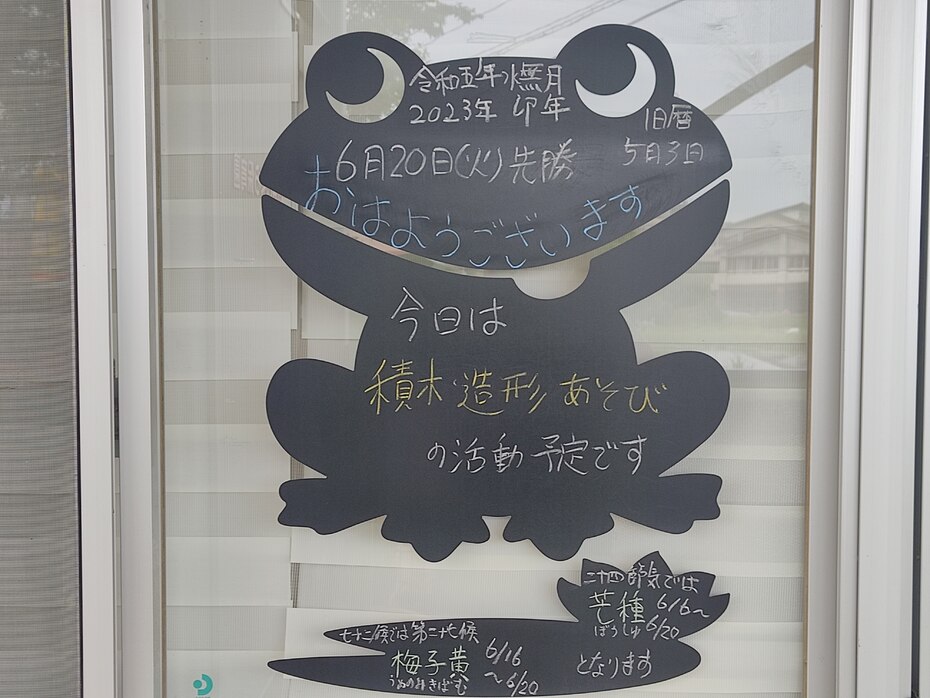 令和五年水無月
2023年 卯年
旧暦
5月3日
6月20日(火)先勝
おはようございます
今日は
積木・造形あそび
の活動予定です
二十四節気では
芒種 6/6～
ぼうしゅ 6/20
七十二候では第二十七候
梅子黄 6/16
うめのみきばむ ～6/20
となります